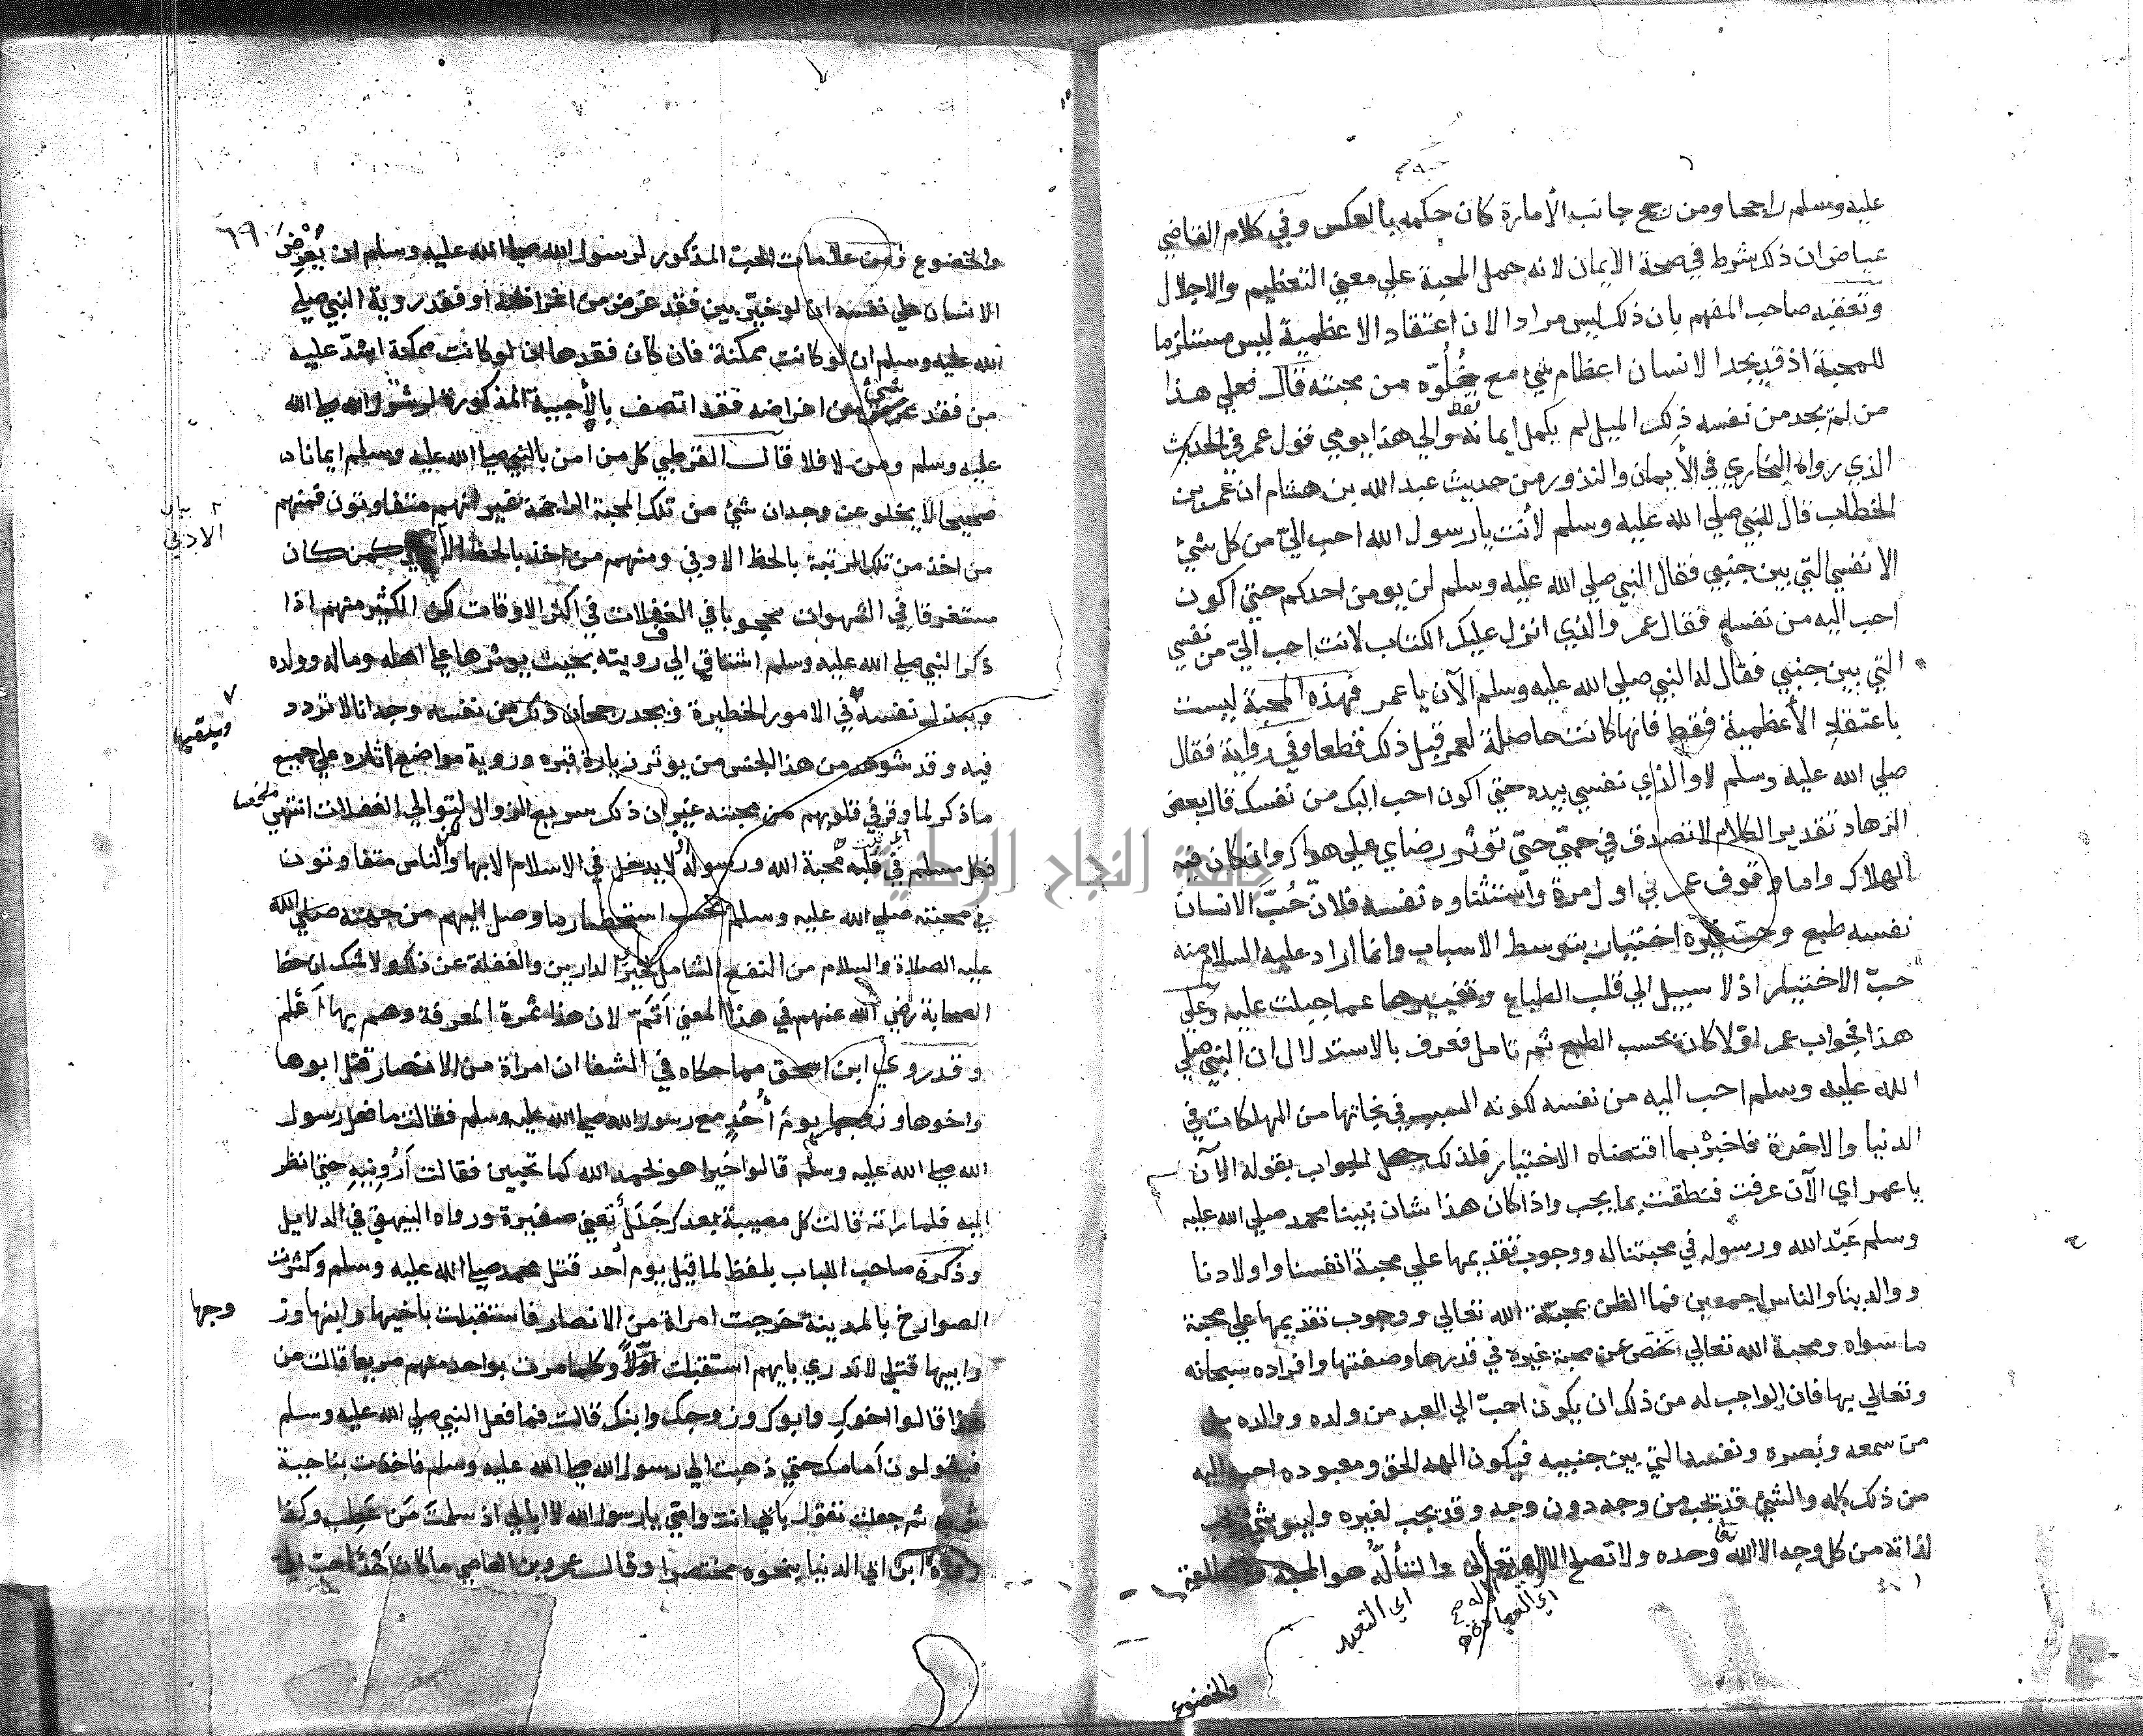 عليه وسلم راجحا ومن رجح جانب الأمارة كان حكمه بالعكس وفي كلام القاضي
عياض ان ذلك شرط في صحة الايمان لانه حمل المحبة علي معني التعظيم والاجلال
وتعقبه صاحب المفهم بان ذلك ليس مرادا لان اعتقاد الاعظمية ليس مستلزما
للمحبة اذ قد يجد الانسان اعظام شيء مع خُلُوّه من محبته قال فعلي هذا
من لم يجد من نفسه ذلك الميل لم يكمل ايمانه والي هذا يومي قول عمر في الحديث
الذي رواه البخاري في الأيمان والنذور من حديث عبد الله بن هشام ان عمر بن
الخطاب قال للنبي صلي الله عليه وسلم لأنت يا رسول الله احب اليّ من كل شيء
الا نفسي التي بين جنبي فقال النبي صلي الله عليه وسلم لن يومن احدكم حتي اكون
احب اليه من نفسه فقال عمر والذي انزل عليك الكتاب لانت احب اليّ من نفسي
التي بين جنبي فقال له النبي صلي الله عليه وسلم الآن يا عمر فهذه المحبة ليست
باعتقاد الأعظمية فقط فانها كانت حاصلة لعمر قبل ذلك قطعا وفي رواية فقال
صلي الله عليه وسلم لا والذي نفسي بيده حتي اكون احب اليك من نفسك قال بعض
الزهاد تقدير الكلام لا تصدق في حبّي حتّي توثر رضاي علي هواك وان كان فيه
الهلاك واما وقوف عمر في اول مرة واستثناوه نفسه فلانّ حُبّ الانسان
نفسه طبع وحب غيره اختيار بتوسط الاسباب وانما اراد عليه السلام منه
حبّ الاختيار اذ لا سبيل الي قلب الطباع وتغييرها عما جبلت عليه وعلي
هذا فجواب عمر اوّلا كان بحسب الطبع ثم تامل فعرف بالاستدلال ان النبي صلي
الله عليه وسلم احب اليه من نفسه لكونه السبب في نجاتها من المهلكات في
الدنيا والاخرة فاخبر بما اقتضاه الاختيار فلذلك حصل الجواب بقوله الآن
يا عمر اي الآن عرفت فنطقت بما يجب واذا كان هذا شان نبينا محمد صلي الله عليه
وسلم عَبْد الله ورسوله في محبتنا له ووجوب تقديمها علي محبة انفسنا واولادنا
ووالدينا والناس اجمعين فما الظن بمحبة الله تعالي ووجوب تقديمها علي محبة
ما سواه ومحبة الله تعالي تختص عن محبة غيره في قدرها وصفتها وافراده سبحانه
وتعالي بها فان الواجب له من ذلك ان يكون احبّ الي العبد من ولده ووالده بل
من سمعه وبصره ونفسه التي بين جنبيه فيكون الهه الحق ومعبوده احب اليه
من ذلك كله والشيء قد يحب من وجه دون وجه وقد يحب لغيره وليس شيء يحب
لذاته من كل وجه الا الله وحده ولا تصلح الا له تعالي والتألّه هو المحبة والطاعة
اي التعبد
اي العبادة
والخضوع
٦٩
والخضوع فمن علامات الحب المذكور لرسول الله صلي الله عليه وسلم ان يُعْرِضَ
الانسان علي نفسه ان لو خيّر بين فقد غرض من اغراضه او فقد روية النبي صلي
الله عليه وسلم ان لو كانت ممكنة فان كان فقدها ان لو كانت ممكنة اشدّ عليه
من فقد شيء من اغراضه فقد اتصف بالأحبية المذكورة لرسول الله صلي الله
عليه وسلم ومن لا فلا قال القرطبي كل من امن بالنبي صلي الله عليه وسلم ايمانا
صحيحا لا يخلو عن وجدان شيء من تلك المحبة الراجحة غير انهم متفاوتون فمنهم
من اخذ من تلك المرتبة بالحظ الاوفي ومنهم من اخذ بالحظ الأدني كمن كان
بيان
الادني
مستغرقا في الشهوات محجوبا في الغفلات في اكثر الاوقات لكن الكثير منهم اذا
ذكر النبي صلي الله عليه وسلم اشتاق الي رويته بحيث يوثرها علي اهله وماله وولده
ويبذل نفسه في الامور الخطيرة ويجد رجحان ذلك من نفسه وجدانا لا تردد
فيه وقد شوهد من هذا الجنس من يوثر زيارة قبره وروية مواضع اثاره علي جميع
ما ذكر لما وقر في قلوبهم من محبته غير ان ذلك سريع الزوال لتوالي الغفلات انتهي
ملخصا
فكل مسلم في قلبه محبة الله ورسوله لا يدخل في الاسلام الا بها والناس متفاوتون
في محبته صلي الله عليه وسلم بحسب استحضار ما وصل اليهم من جهته صلي الله
عليه الصلاة والسلام من النفع الشامل لخير الدارين والغفلة عن ذلك ولا شك ان حظ
الصحابة رضي الله عنهم في هذا المعني أتمّ لان هذا ثمرة المعرفة وهم بها أعلم
وقد روي ابن اسحق مما حكاه في الشفا ان امراة من الانصار قتل ابوها
واخوها وزوجها يوم أُحُدٍ مع رسول الله صلي الله عليه وسلم فقالت ما فعل رسول
الله صلي الله عليه وسلم قالوا خيرا هو بحمد الله كما تحبين فقالت أرونيه حتي انظر
اليه فلما راته قالت كل مصيبة بعدك جَلَل تعني صغيرة ورواه البيهقي في الدلايل
وذكره صاحب اللباب بلفظ لما قيل يوم أحد قتل محمد صلي الله عليه وسلم وكثرت
الصوارخ بالمدينة خرجت امراة من الانصار فاستقبلت باخيها وابنها وز
وجها
وابيها قتلي لا تدري بايهم استقبلت اوّلاً وكلما مرت بواحد منهم صريعا قالت من
هذا قالوا اخوك وابوك وزوجك وابنك قالت فما فعل النبي صلي الله عليه وسلم
فيقولون أمامك حتي ذهبت الي رسول الله صلي الله عليه وسلم فاخذت بناحية
ثوبه ثم جعلت تقول بابي انت وامي يا رسول الله لا ابالي اذ سلمتَ مَن عَطِب وكذا
رواه ابن ابي الدنيا بنحوه مختصرا وقال عمرو بن العاصي ما كان أحد احب اليّ
جامعة النجاح الوطنية